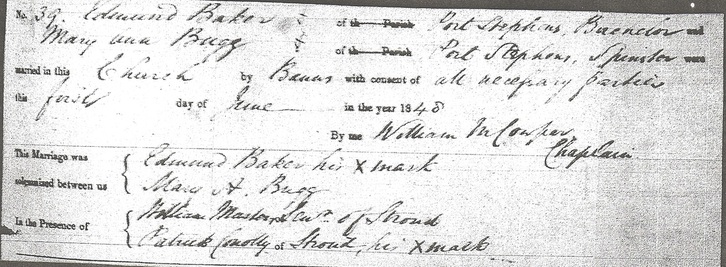 No. 39. Edmund Baker of the Parish Port Stephens, Bachelor and
Mary Ann Bugg of the Parish Port Stephens, Spinster were
married in this Church by Banns with consent of all necessary parties
this first day of June in the year 1848
By me William McCowper
Chaplain
This Marriage was
solemnized between us
Edmund Baker his X mark
Mary A. Bugg
In the Presence of
William Masters of Stroud
Patrick Conolly of Stroud, his X mark